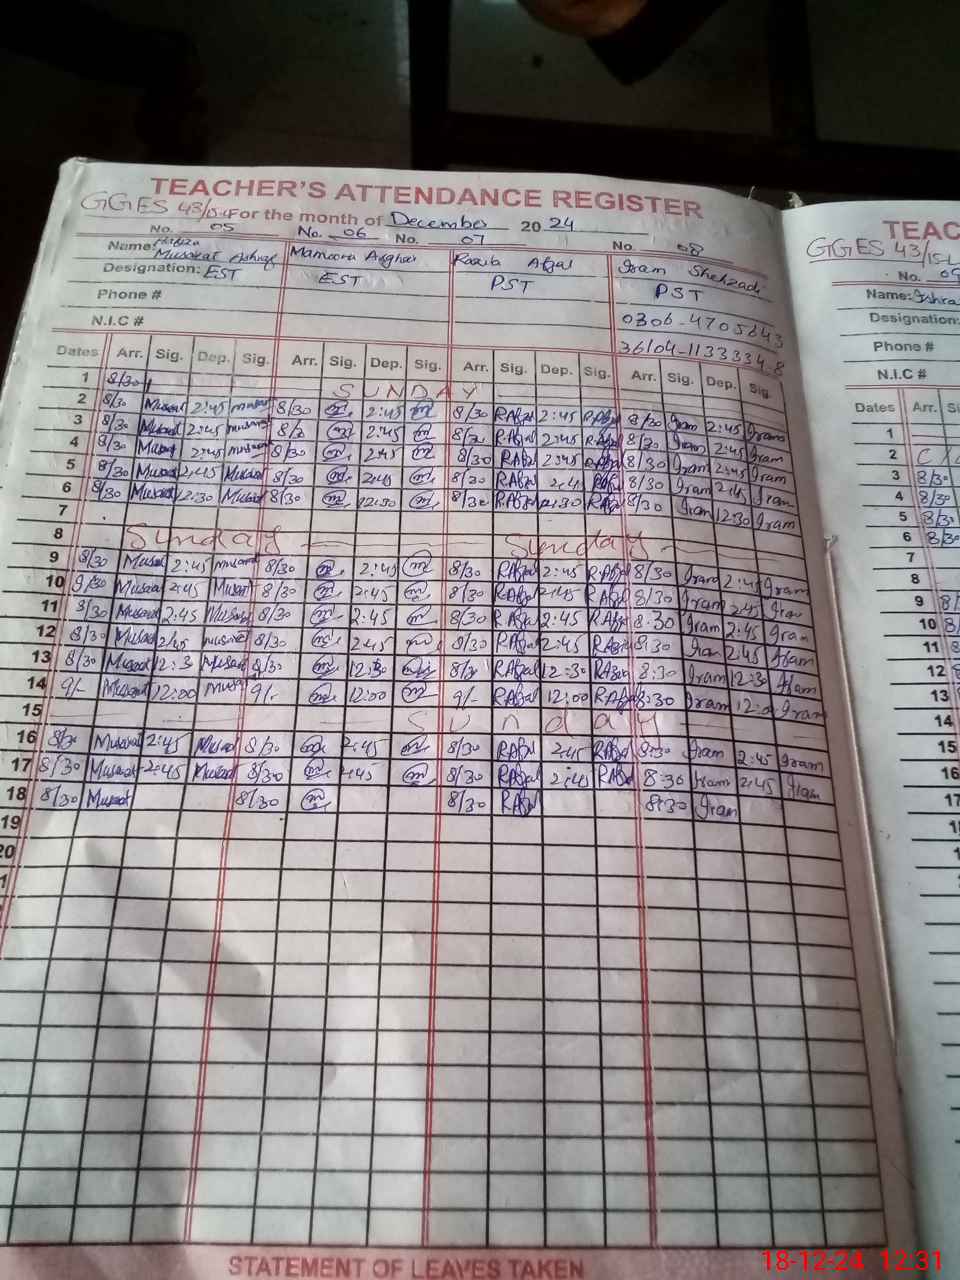 TEACHER'S ATTENDANCE REGISTER
GGES 43/15-L For the month of December 20 24
No. 05 No. 06 No. 07 No. 08
Name: Musarat Ashraf Mamoora Asghar Raaila Afzal Iram Shehzadi
Designation: EST EST PST PST
Phone # 0306-4705643
N.I.C # 36104-1133334-8
Dates Arr. Sig. Dep. Sig. Arr. Sig. Dep. Sig. Arr. Sig. Dep. Sig. Arr. Sig. Dep. Sig.
1 8/30 SUNDAY
2 8/30 Musarat 2:45 Musarat 8/30 m 2:45 m 8/30 RAfzal 2:45 RAfzal 8/30 Iram 2:45 Iram
3 8/30 Musarat 2:45 Musarat 8/30 m 2:45 m 8/30 RAfzal 2:45 RAfzal 8/30 Iram 2:45 Iram
4 8/30 Musarat 2:45 Musarat 8/30 m 2:45 m 8/30 RAfzal 2:45 RAfzal 8/30 Iram 2:45 Iram
5 8/30 Musarat 2:45 Musarat 8/30 m 2:45 m 8/30 RAfzal 2:45 RAfzal 8/30 Iram 2:45 Iram
6 8/30 Musarat 12:30 Musarat 8/30 m 12:30 m 8/30 RAfzal 12:30 RAfzal 8/30 Iram 12:30 Iram
7
8 Sunday Sunday
9 8/30 Musarat 2:45 Musarat 8/30 m 2:45 m 8/30 RAfzal 2:45 RAfzal 8/30 Iram 2:45 Iram
10 9/30 Musarat 2:45 Musarat 8/30 m 2:45 m 8/30 RAfzal 2:45 RAfzal 8/30 Iram 2:45 Iram
11 8/30 Musarat 2:45 Musarat 8/30 m 2:45 m 8/30 RAfzal 2:45 RAfzal 8:30 Iram 2:45 Iram
12 8/30 Musarat 2:45 Musarat 8/30 m 2:45 m 8/30 RAfzal 2:45 RAfzal 8:30 Iram 2:45 Iram
13 8/30 Musarat 12:30 Musarat 8/30 m 12:30 m 8/30 RAfzal 12:30 RAfzal 8:30 Iram 12:30 Iram
14 9/- Musarat 12:00 Musarat 9/- m 12:00 m 9/- RAfzal 12:00 RAfzal 8:30 Iram 12:00 Iram
15 Sunday
16 8/30 Musarat 2:45 Musarat 8/30 m 2:45 m 8/30 RAfzal 2:45 RAfzal 8:30 Iram 2:45 Iram
17 8/30 Musarat 2:45 Musarat 8/30 m 2:45 m 8/30 RAfzal 2:45 RAfzal 8:30 Iram 2:45 Iram
18 8/30 Musarat 8/30 m 8/30 RAfzal 8:30 Iram
19
20
STATEMENT OF LEAVES TAKEN
TEAC
GGES 43/15-L
No. 09
Name: Ishra
Designation:
Phone #
N.I.C #
Dates Arr. Sig
1
2
3 8/30
4 8/30
5 8/30
6 8/30
7
8
9
10
11
12
13
14
15
16
17
18-12-24 12:31